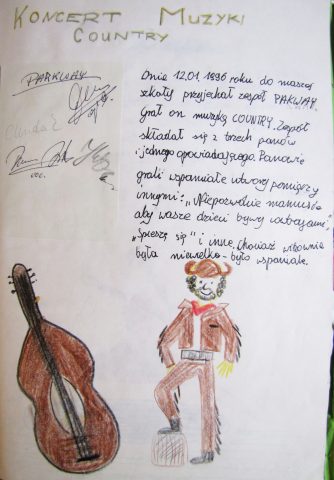 KONCERT MUZYKI
COUNTRY
PARKWAY
Dnia 12.01.1996 roku do naszej
szkoły przyjechał zespół PAKWAY.
Grał on muzykę COUNTRY. Zespół
składał się z trzech panów
i jednego opowiadającego. Panowie
grali wspaniałe utwory pomiędzy
innymi: "Niepozwólcie mamusie
aby wasze dzieci były kowbojami",
"Spieszę się" i inne. Chociaż widownia
była niewielka - było wspaniale.
voc.